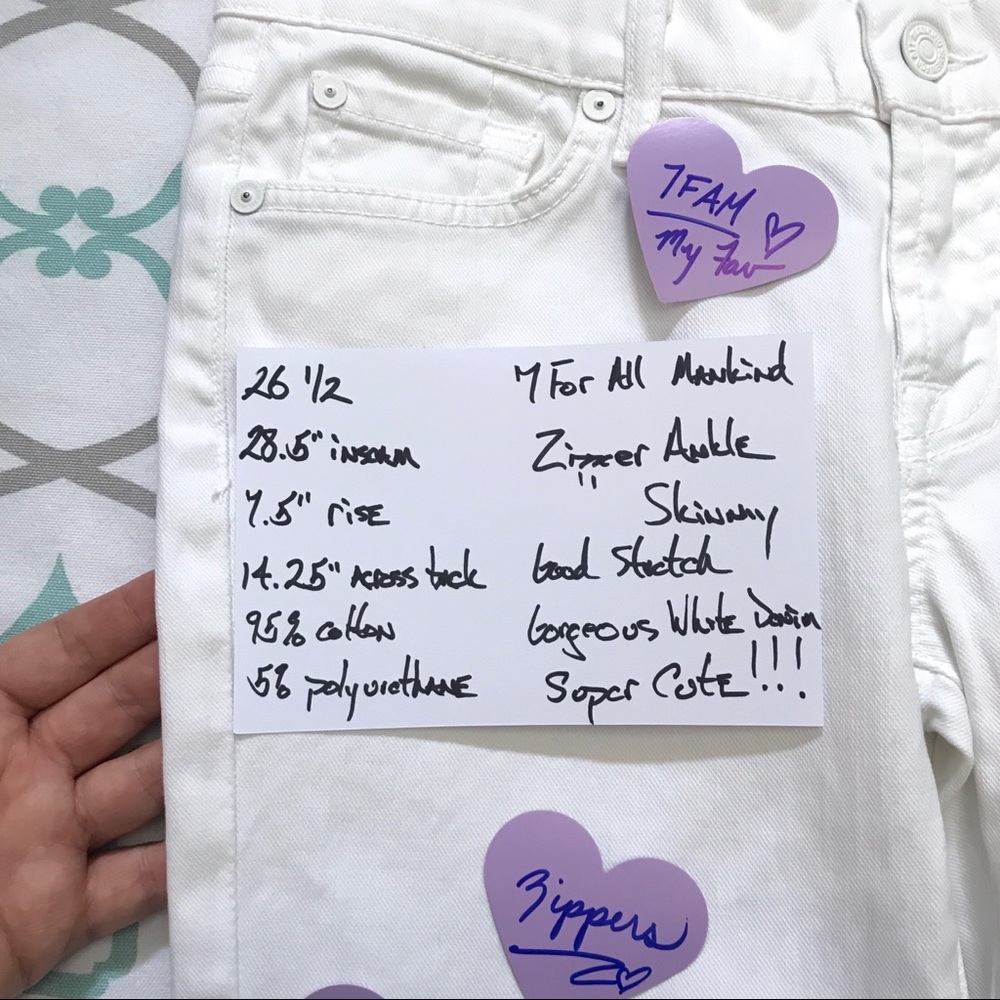 7FAM
My Fav
26 1/2
28.5" inseam
7.5" rise
14.25" Across back
95% cotton
5% polyurethane
7 For All Mankind
Zipper Ankle
Skinny
Good Stretch
Gorgeous White Denim
Super Cute!!!
Zippers